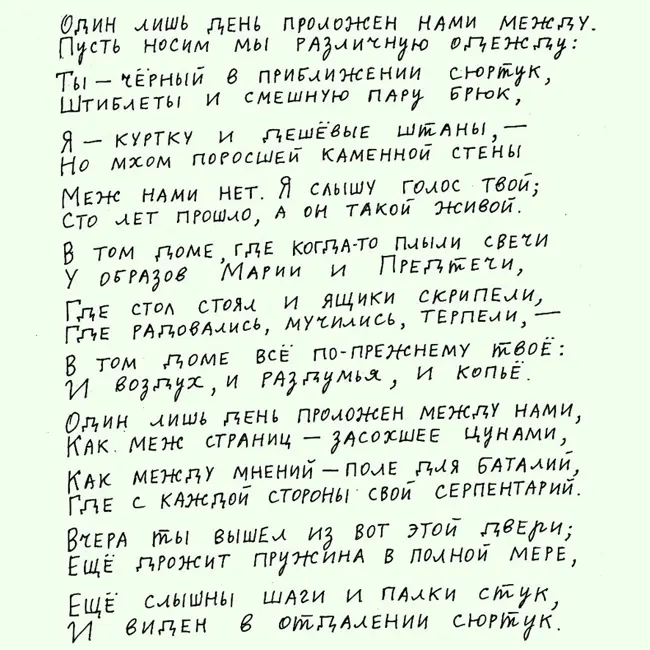 Один лишь день проложен нами между.
Пусть носим мы различную одежду:
Ты — чёрный в приближении сюртук,
Штиблеты и смешную пару брюк,
Я — куртку и дешёвые штаны, —
Но мхом поросшей каменной стены
Меж нами нет. Я слышу голос твой;
Сто лет прошло, а он такой живой.
В том доме, где когда-то плыли свечи
У образов Марии и Предтечи,
Где стол стоял и ящики скрипели,
Где радовались, мучились, терпели, —
В том доме всё по-прежнему твоё:
И воздух, и раздумья, и копьё.
Один лишь день проложен между нами,
Как меж страниц — засохшее цунами,
Как между мнений — поле для баталий,
Где с каждой стороны свой серпентарий.
Вчера ты вышел из вот этой двери;
Ещё дрожит пружина в полной мере,
Ещё слышны шаги и палки стук,
И виден в отдалении сюртук.